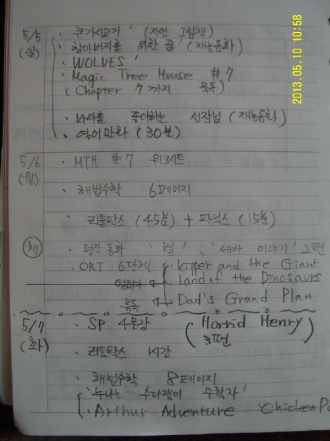 2013.05.10 10:58
5/5 · 콩기시리기 ' (자연 그림책)
(일) · 할아버지를 위한 꿈 ' (재능동화)
· WOLVES '
· Magic Tree House #7
( Chapter 7 까지 독독)
· 바라를 좋아하는 선장님 (재능동화)
· 영어만화 (30분)
5/6 · MTH #7 워크시트
(월)
· 해법수학 6페이지
· 리틀팍스 (45분) + 파닉스 (15분)
(책) · 명작동화 '별', '세하 이야기' 2편
· ORT 6단계 Kipper and the Giant
Land of the Dinosaurs
Dad's Grand Plan.
5/7 · SP 4문장 (Horrid Henry
(화) 3편)
· 리틀팍스 1시간
· 해법수학 8페이지
· 누나는 수다쟁이 수학자 '
· Arthur Adventure Chicken Po